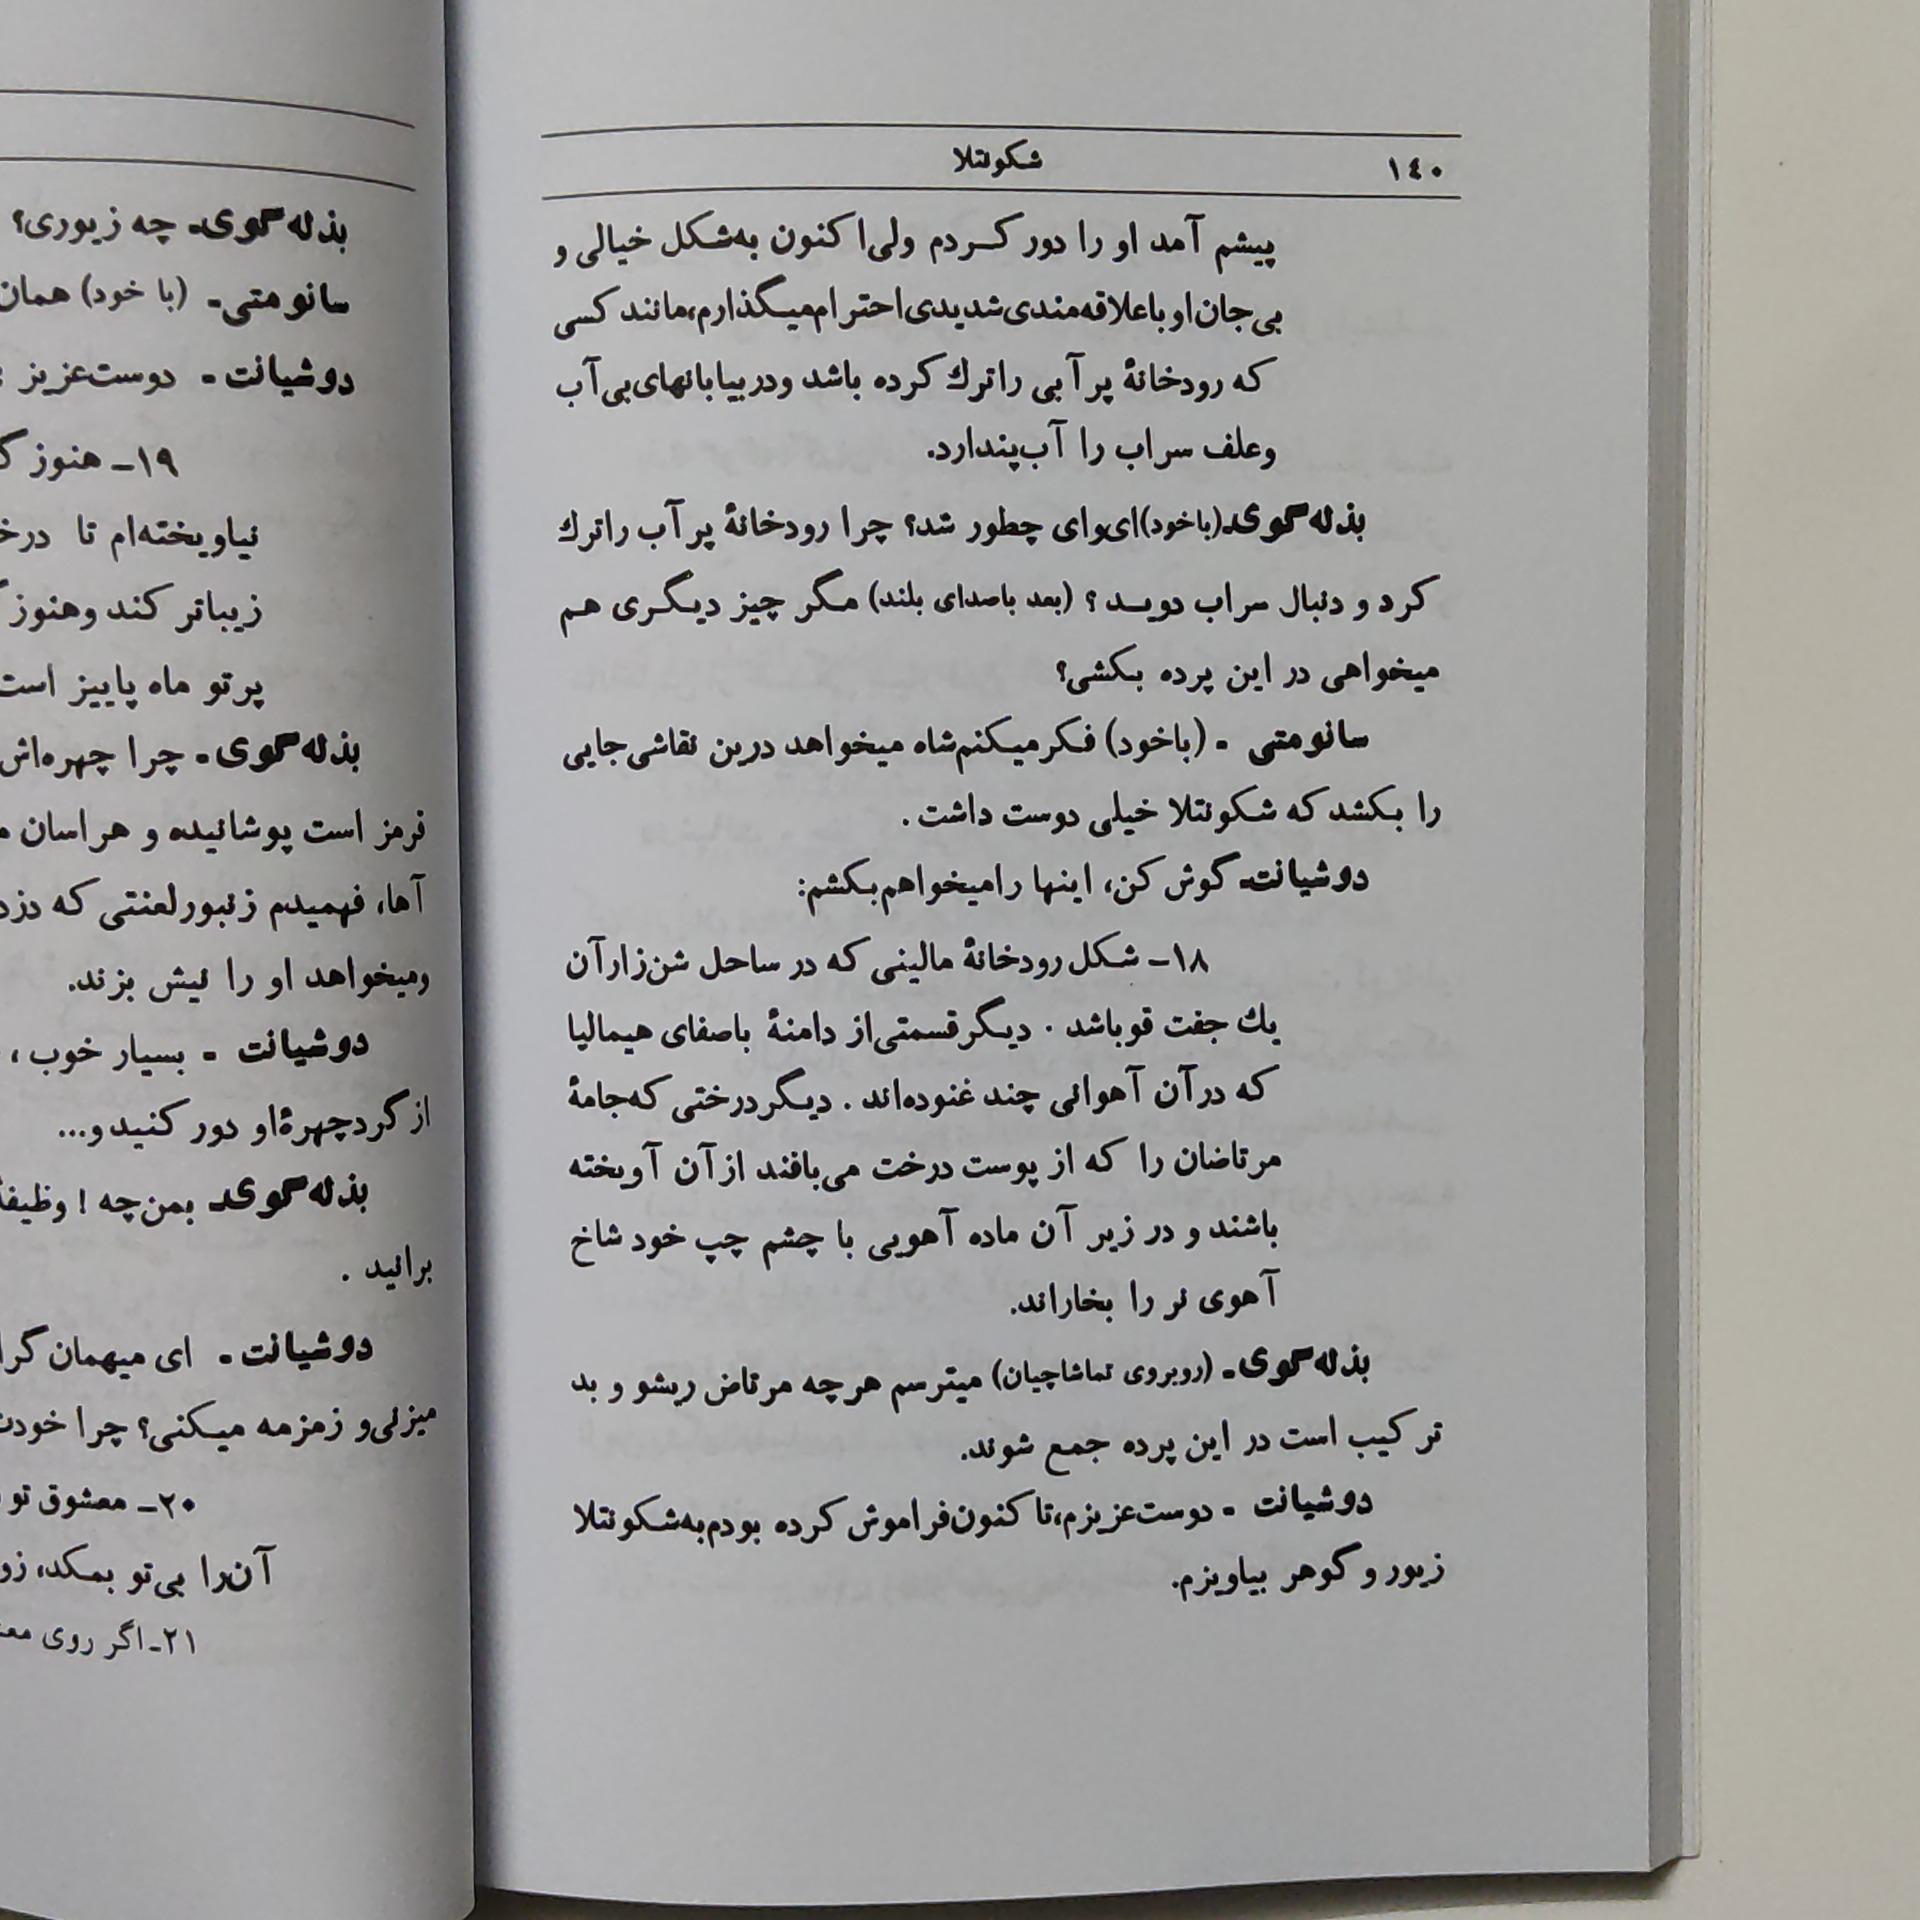 ١٤٠
شکونتلا
پیشم آمد او را دور کردم ولی اکنون به‌شکل خیالی و
بی‌جان او با علاقه‌مندی شدیدی احترام میگذارم، مانند کسی
که رودخانهٔ پر آبی را ترك کرده باشد و در بیابانهای بی‌آب
وعلف سراب را آب پندارد.
بذله‌گوی- (باخود) ای‌وای چطور شد؟ چرا رودخانهٔ پر آب را ترك
کرد و دنبال سراب دوید؟ (بعد باصدای بلند) مگر چیز دیگری هم
میخواهی در این پرده بکشی؟
سانومتی - (باخود) فکر میکنم شاه میخواهد درین نقاشی جایی
را بکشد که شکونتلا خیلی دوست داشت.
دوشیانت- گوش کن، اینها را میخواهم بکشم:
۱۸- شکل رودخانهٔ مالینی که در ساحل شن‌زار آن
یك جفت قو باشد. دیگر قسمتی از دامنهٔ باصفای هیمالیا
که در آن آهوانی چند غنوده‌اند. دیگر درختی که جامهٔ
مرتاضان را که از پوست درخت می‌بافند از آن آویخته
باشند و در زیر آن ماده آهویی با چشم چپ خود شاخ
آهوی نر را بخاراند.
بذله‌گوی- (روبروی تماشاچیان) میترسم هرچه مرتاض ریشو و بد
ترکیب است در این پرده جمع شوند.
دوشیانت - دوست عزیزم، تاکنون فراموش کرده بودم به شکونتلا
زیور و گوهر بیاویزم.
بذله‌گوی- چه زیوری؟
سانومتی- (با خود) همان
دوشیانت- دوست عزیز
۱۹- هنوز
نیاویخته‌ام تا
زیباتر کند وهنوز
پرتو ماه پاییز است
بذله‌گوی- چرا چهره‌اش
قرمز است پوشانیده و هراسان
آها، فهمیدم زنبور لعنتی که
ومیخواهد او را نیش بزند.
دوشیانت - بسیار خوب،
از گرد چهرهٔ او دور کنید و...
بذله‌گوی- بمن چه!
برانید.
دوشیانت- ای میهمان
میزنی و زمزمه میکنی؟ چرا
۲۰- معشوق تو
آن‌را بی‌تو بمکد،
۲۱- اگر روی